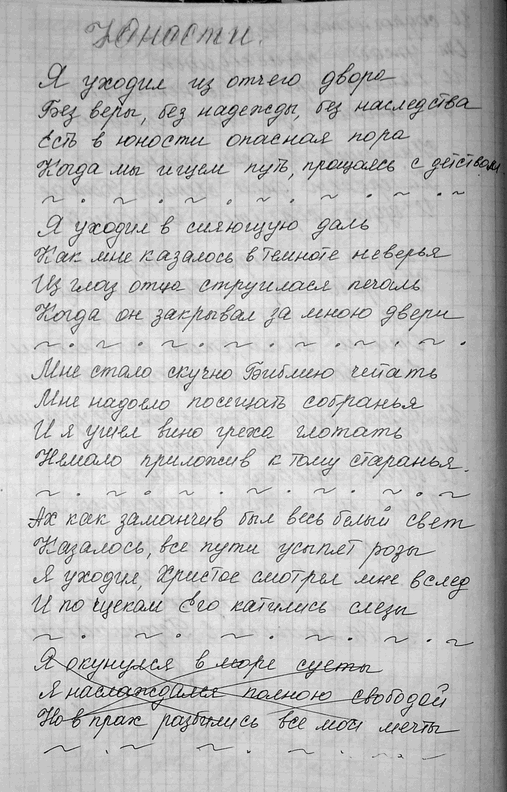 Юности.
Я уходил из отчего двора
Без веры, без надежды, без наследства
Есть в юности опасная пора
Когда мы ищем путь, прощаясь с детством
Я уходил в сияющую даль
Как мне казалось в темноте неверья
Из глаз отца струилася печаль
Когда он закрывал за мною двери
Мне стало скучно Библию читать
Мне надоело посещать собранья
И я ушел вино греха глотать
Немало приложив к тому старанья.
Ах как заманчив был весь белый свет
Казалось, все пути усыплет розы
Я уходил, Христос смотрел мне вслед
И по щекам Его катились слезы
Я окунулся в море суеты
Я наслаждался полною свободой
Но в прах разбились все мои мечты